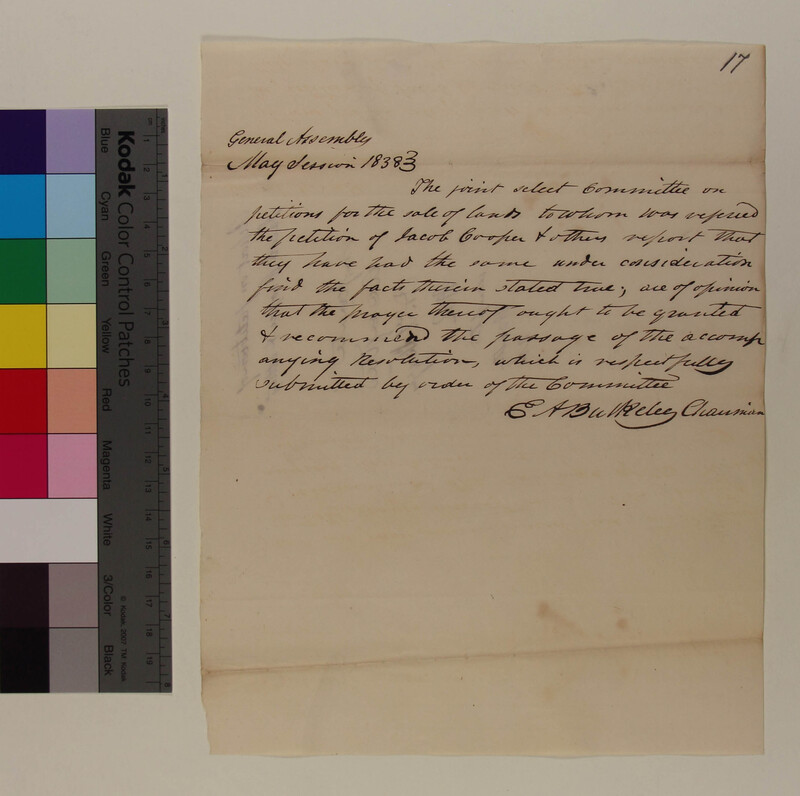 17
General Assembly
May Session 1838}
The joint select Committee on
petitions for the sale of lands to whom was referred
the petition of Jacob Cooper & others report that
they have had the same under consideration
find the facts therein stated true; are of opinion
that the prayer thereof ought to be granted
& recommend the passage of the accomp
anying Resolution, which is respectfully
submitted by order of the Committee
E A Bulkeley Chairman
Kodak Color Control Patches
Blue Cyan Green Yellow Red Magenta White 3/Color Black
© Kodak, 2007 TM: Kodak
cm 1 2 3 4 5 6 7 8 9 10 11 12 13 14 15 16 17 18 19
inches 1 2 3 4 5 6 7 8